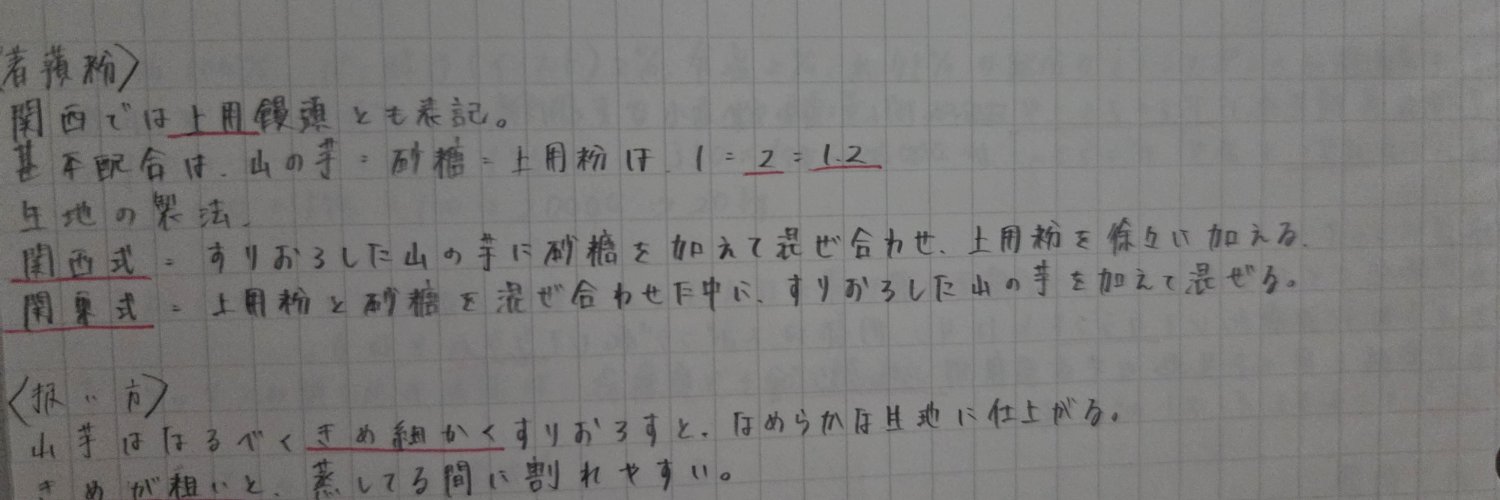 〈着蕷粉〉
関西では上用饅頭とも表記。
基本配合は、山の芋:砂糖:上用粉は、1:2:1.2
生地の製法、
関西式:すりおろした山の芋に砂糖を加えて混ぜ合わせ、上用粉を徐々に加える。
関東式:上用粉と砂糖を混ぜ合わせた中に、すりおろした山の芋を加えて混ぜる。
〈扱い方〉
山芋はなるべくきめ細かくすりおろすと、なめらかな生地に仕上がる。
きめが粗いと、蒸してる間に割れやすい。